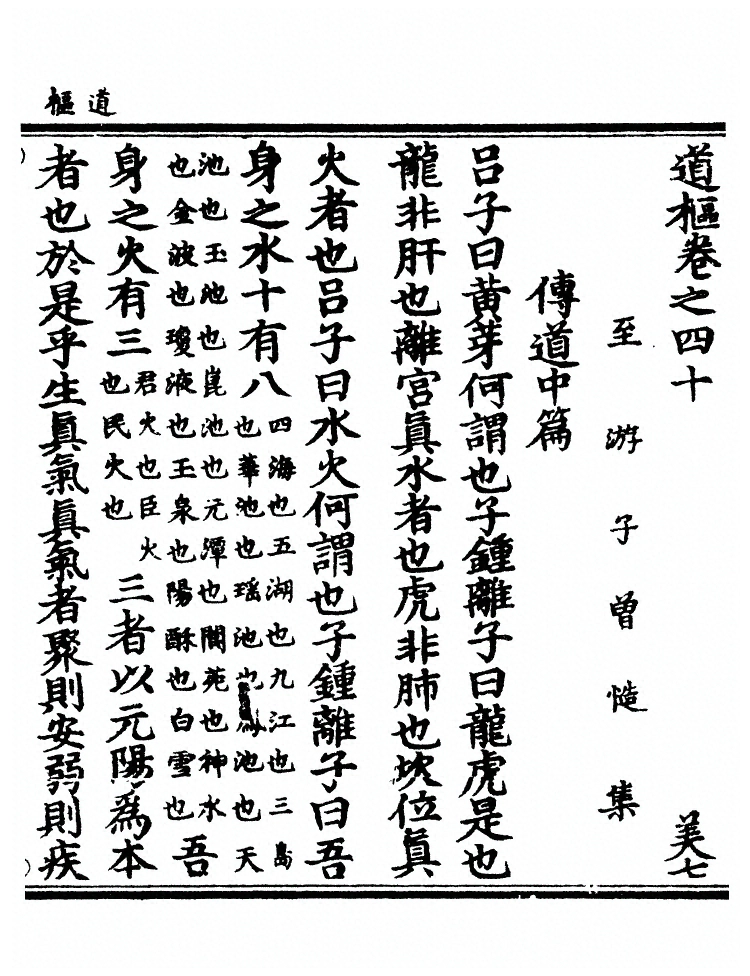 道樞
道樞卷之四十 美七
至游子曾慥集
傳道中篇
呂子曰黃芽何謂也子鍾離子曰龍虎是也
龍非肝也離宮眞水者也虎非肺也坎位眞
火者也呂子曰水火何謂也子鍾離子曰吾
身之水十有八四海也五湖也九江也三島
也華池也瑤池也池也天
池也玉池也崑池也元潭也閬苑也神水
也金波也瓊液也玉泉也陽酥也白雪也吾
身之火有三君火也臣火
也民火也三者以元陽爲本
者也於是乎生眞氣眞氣者聚則安弱則疾